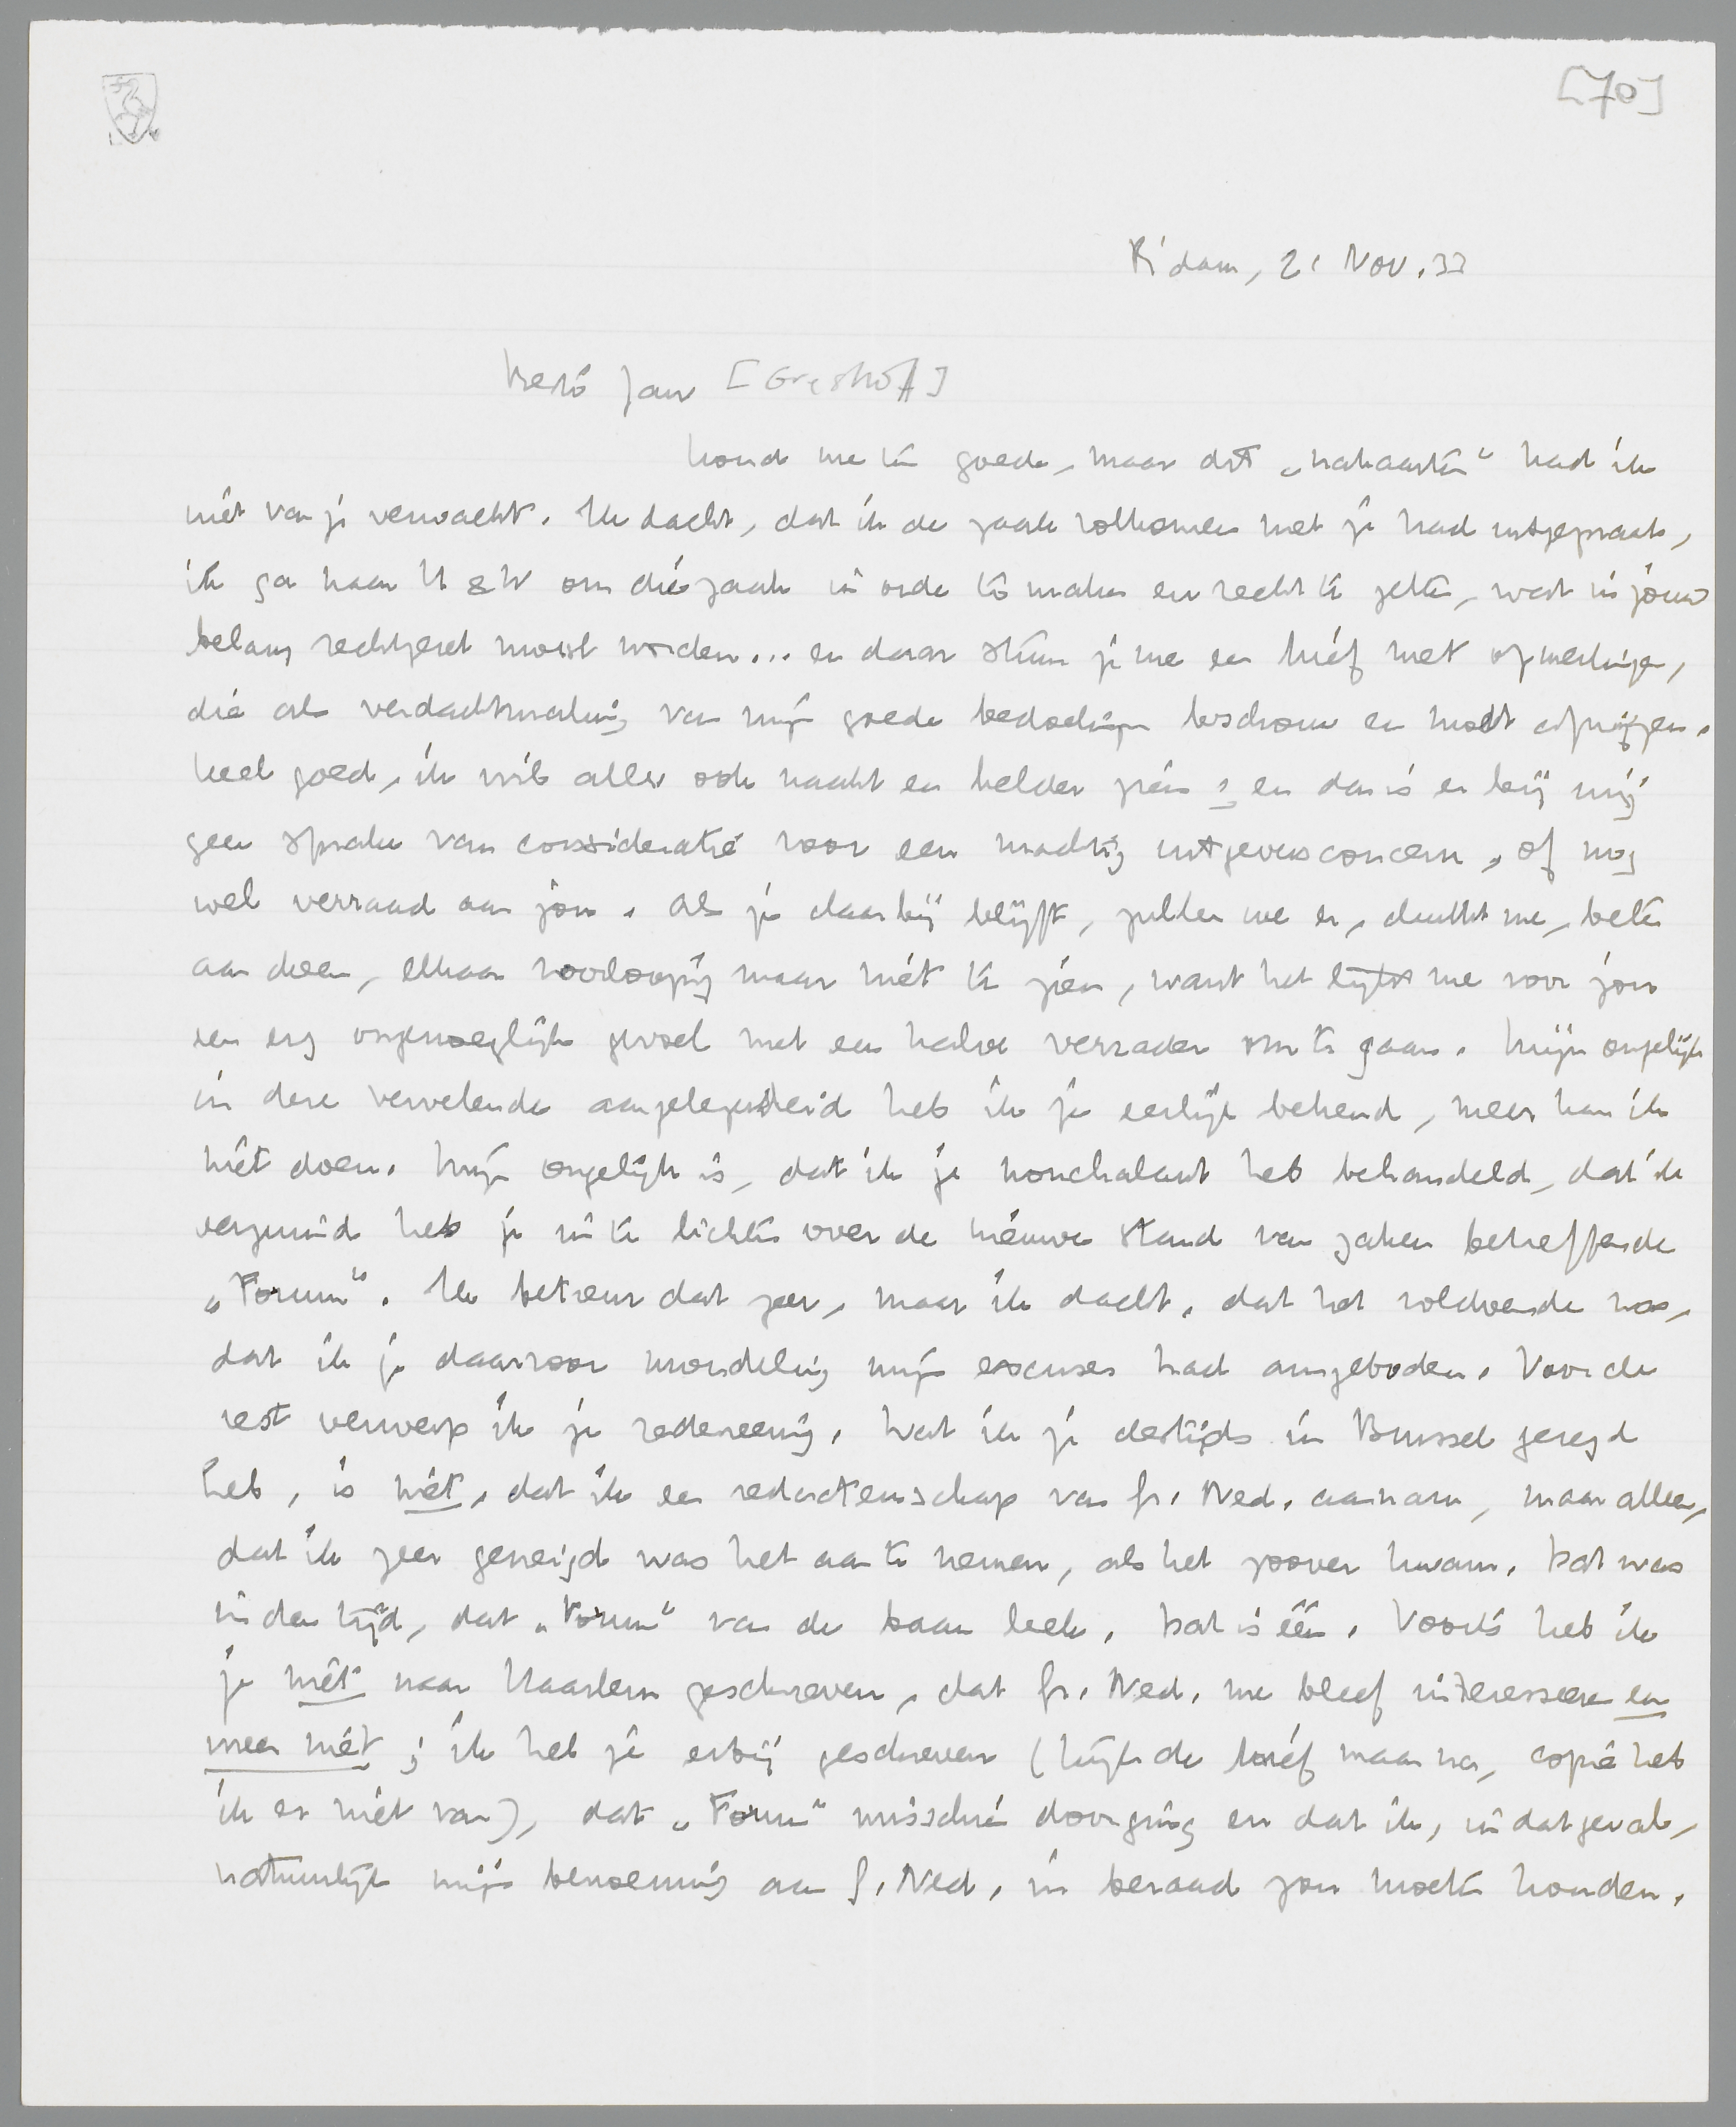 [70]
R'dam, 21 Nov. 33
Beste Jan [Greshoff]
Houd me ten goede, maar dit „nakaarten” had ik
niet van je verwacht. Ik dacht, dat ik de zaak volkomen met je had uitgepraat,
ik ga naar N & V om die zaak in orde te maken en recht te zetten, wat in jouw
belang rechtgezet moest worden... en daar stuur je me een brief met opmerkingen,
die als verdachtmaking van mijn goede bedoelingen beschouw en moet afwijzen.
Heel goed, ik wil alles ook naakt en helder zien; en dan is er bij mij
geen sprake van consideratie voor een machtig uitgeversconcern, of nog
wel verraad aan jou. Als je daarbij blijft, zullen we er, dunkt me, beter
aan doen, elkaar voorloopig maar niet te zien, want het lijkt me voor jou
een erg ongenoeglijk gevoel met een halve verrader om te gaan. Mijn ongelijk
in deze vervelende aangelegenheid heb ik je eerlijk bekend, meer kan ik
niet doen. Mijn ongelijk is, dat ik je nonchalant heb behandeld, dat ik
verzuimd heb je in te lichten over de nieuwe stand van zaken betreffende
„Forum”. Ik betreur dat zeer, maar ik dacht, dat het voldoende was,
dat ik je daarvoor mondeling mijn excuses had aangeboden. Voor de
rest verwerp ik je redeneering. Wat ik je destijds in Brussel gezegd
heb, is niet, dat ik een redacteurschap van Gr. Ned. aannam, maar alleen,
dat ik zeer geneigd was het aan te nemen, als het zoover kwam. Dat was
in den tijd, dat „Forum” van de baan leek. Dat is één. Voorts heb ik
je niet naar Haarlem geschreven, dat Gr. Ned. me bleef interesseeren en
meer niet; ik heb je erbij geschreven (kijk de brief maar na, copie heb
ik er niet van), dat „Forum” misschien doorging en dat ik, in dat geval,
natuurlijk mijn benoeming aan G. Ned. in beraad zou moeten houden.